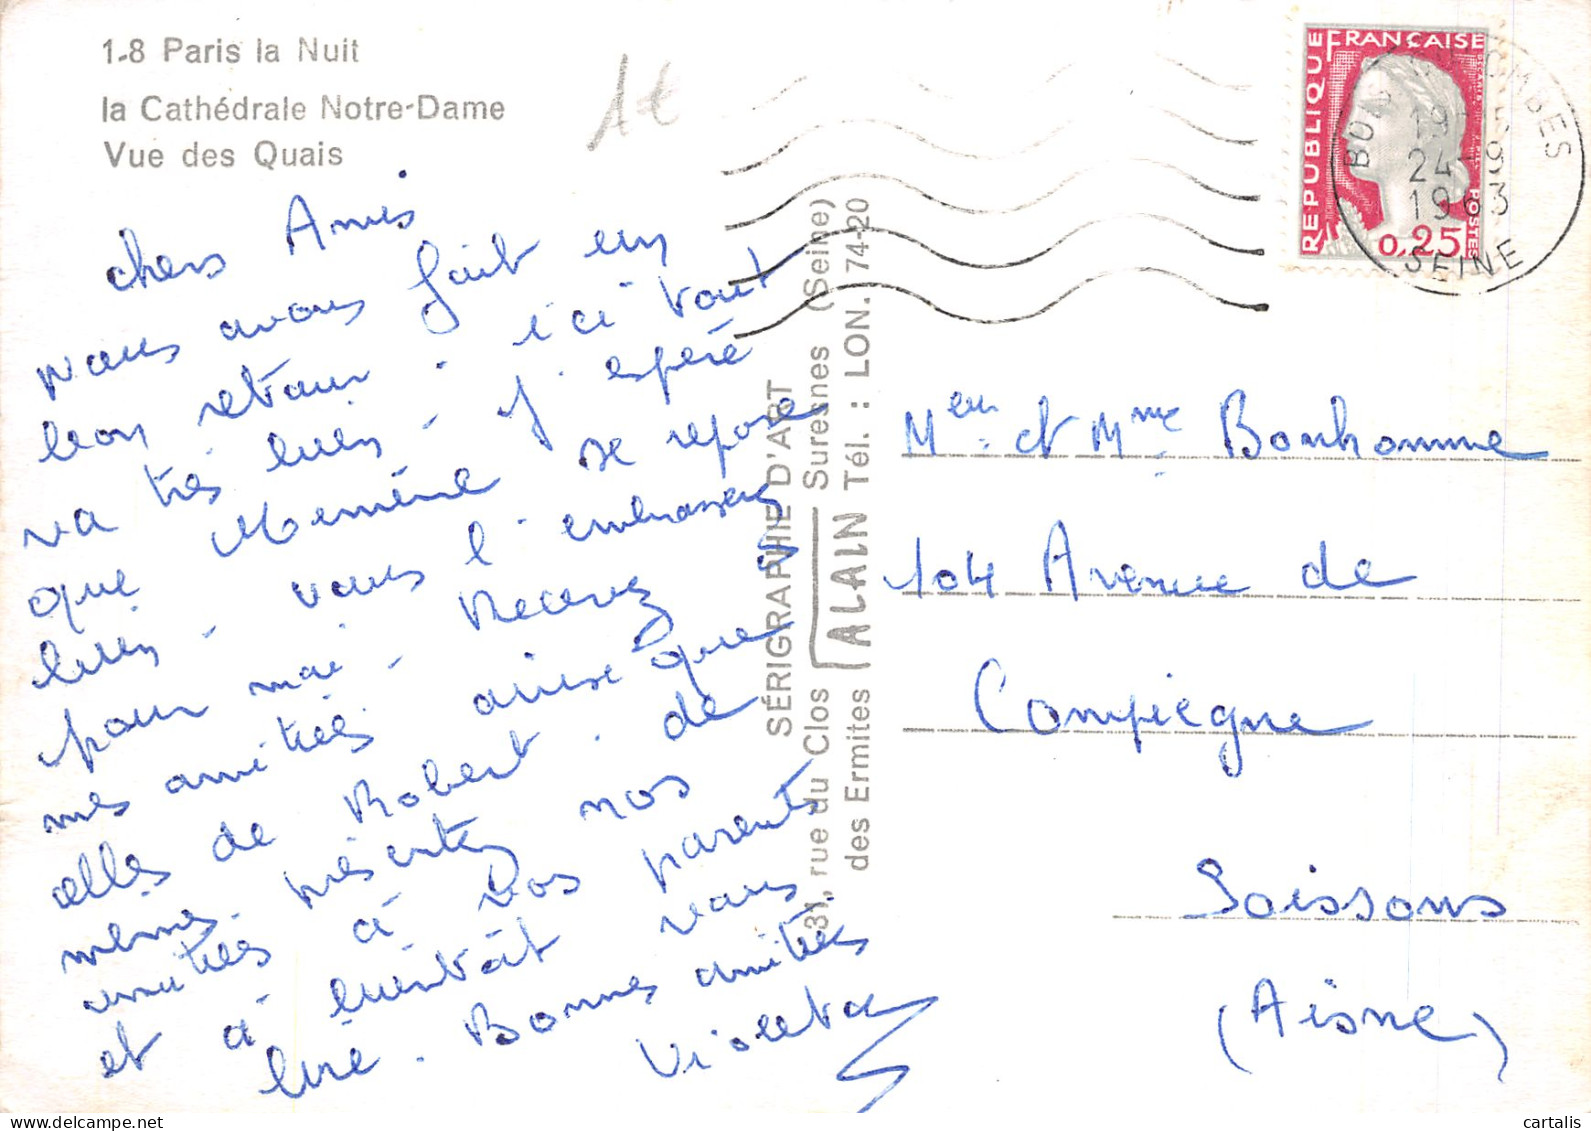 1-8 Paris la Nuit
la Cathédrale Notre-Dame
Vue des Quais
1€
chers Amis
nous avons fait un
bon retour. ici tout
va très bien - j'espère
que Mémène se repose
bien - vous l'embrasserez
pour moi - Recevez
mes amitiés ainsi que
celles de Robert. de
mêmes. présentez nos
amitiés à vos parents
et à bientôt vous
lire. Bonnes amitiés
Violeta
SÉRIGRAPHIE D'ART
ALAIN
31, rue du Clos
des Ermites
Suresnes (Seine)
Tél. : LON. 74-20
REPUBLIQUE FRANÇAISE
POSTES
0,25
24-9
1963
SEINE
Meur et Mme Bonhomme
104 Avenue de
Compiegne
Soissons
(Aisne)
cartalis